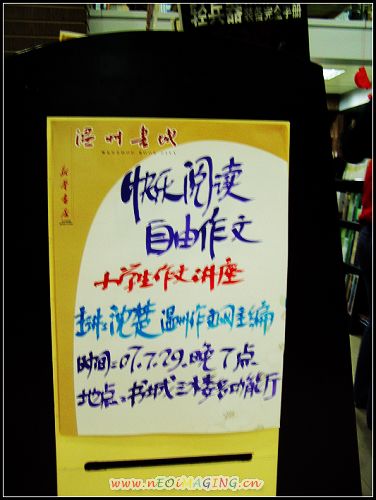 轻兵器装备完全手册
温州书城
WENZHOU BOOK CITY
新华书店
快乐阅读
自由作文
小学生作文讲座
主讲:沈楚 温州作文网主编
时间:07.7.29.晚7点
地点:书城三楼多功能厅
www.nEOiMAGING.cn